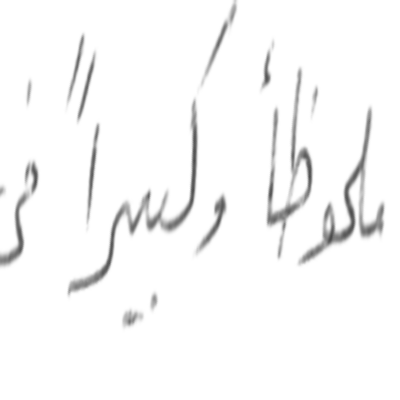 ملحوظأ وكبيراً في